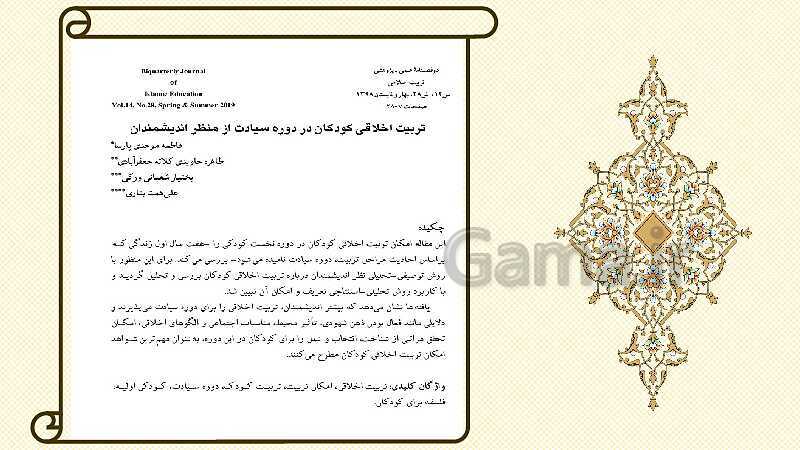 Biquarterly Journal
of
Islamic Education
Vol.14, No.28, Spring & Summer 2019
دوفصلنامهٔ علمی ـ پژوهشی
تربیت اسلامی
س۱۴، ش۲۸، بهار و تابستان ۱۳۹۸
صفحات ۷-۲۸
تربیت اخلاقی کودکان در دوره سیادت از منظر اندیشمندان
فاطمه موحدی پارسا*
طاهره جاویدی کلاته جعفرآبادی**
بختیار شعبانی ورکی***
علی‌همت بناری****
چکیده
این مقاله امکان تربیت اخلاقی کودکان در دوره نخست کودکی را -هفت سال اول زندگی که
براساس احادیث مراحل تربیت، دوره سیادت نامیده می‌شود- بررسی می کند. برای این منظور با
روش توصیفی-تحلیلی نظر اندیشمندان درباره تربیت اخلاقی کودکان بررسی و تحلیل گردید و
با کاربرد روش تحلیلی-استنتاجی تعریف و امکان آن تبیین شد.
یافته‌ها نشان می‌دهد که بیشتر اندیشمندان، تربیت اخلاقی را برای دوره سیادت می‌پذیرند و
دلایلی مانند فعال بودن ذهن شهودی، تأثیر محیط، مناسبات اجتماعی و الگوهای اخلاقی، امکان
تحقق مراتبی از شناخت، انتخاب و عمل را برای کودکان در این دوره، به‌عنوان مهم‌ترین شواهد
امکان تربیت اخلاقی کودکان مطرح می‌کنند.
واژگان کلیدی: تربیت اخلاقی، امکان تربیت، تربیت کودک، دوره سیادت، کودکی اولیه،
فلسفه برای کودکان.